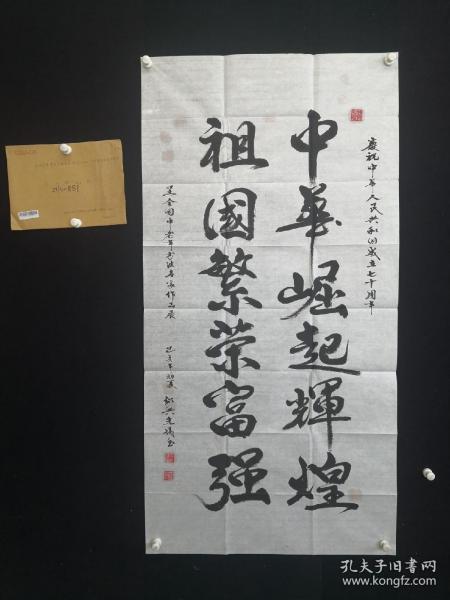 慶祝中华人民共和国成立七十周年
中華崛起輝煌
祖國繁荣富强
呈全国中老年书法名家作品展
己亥年初夏
孔夫子旧书网
www.kongfz.com